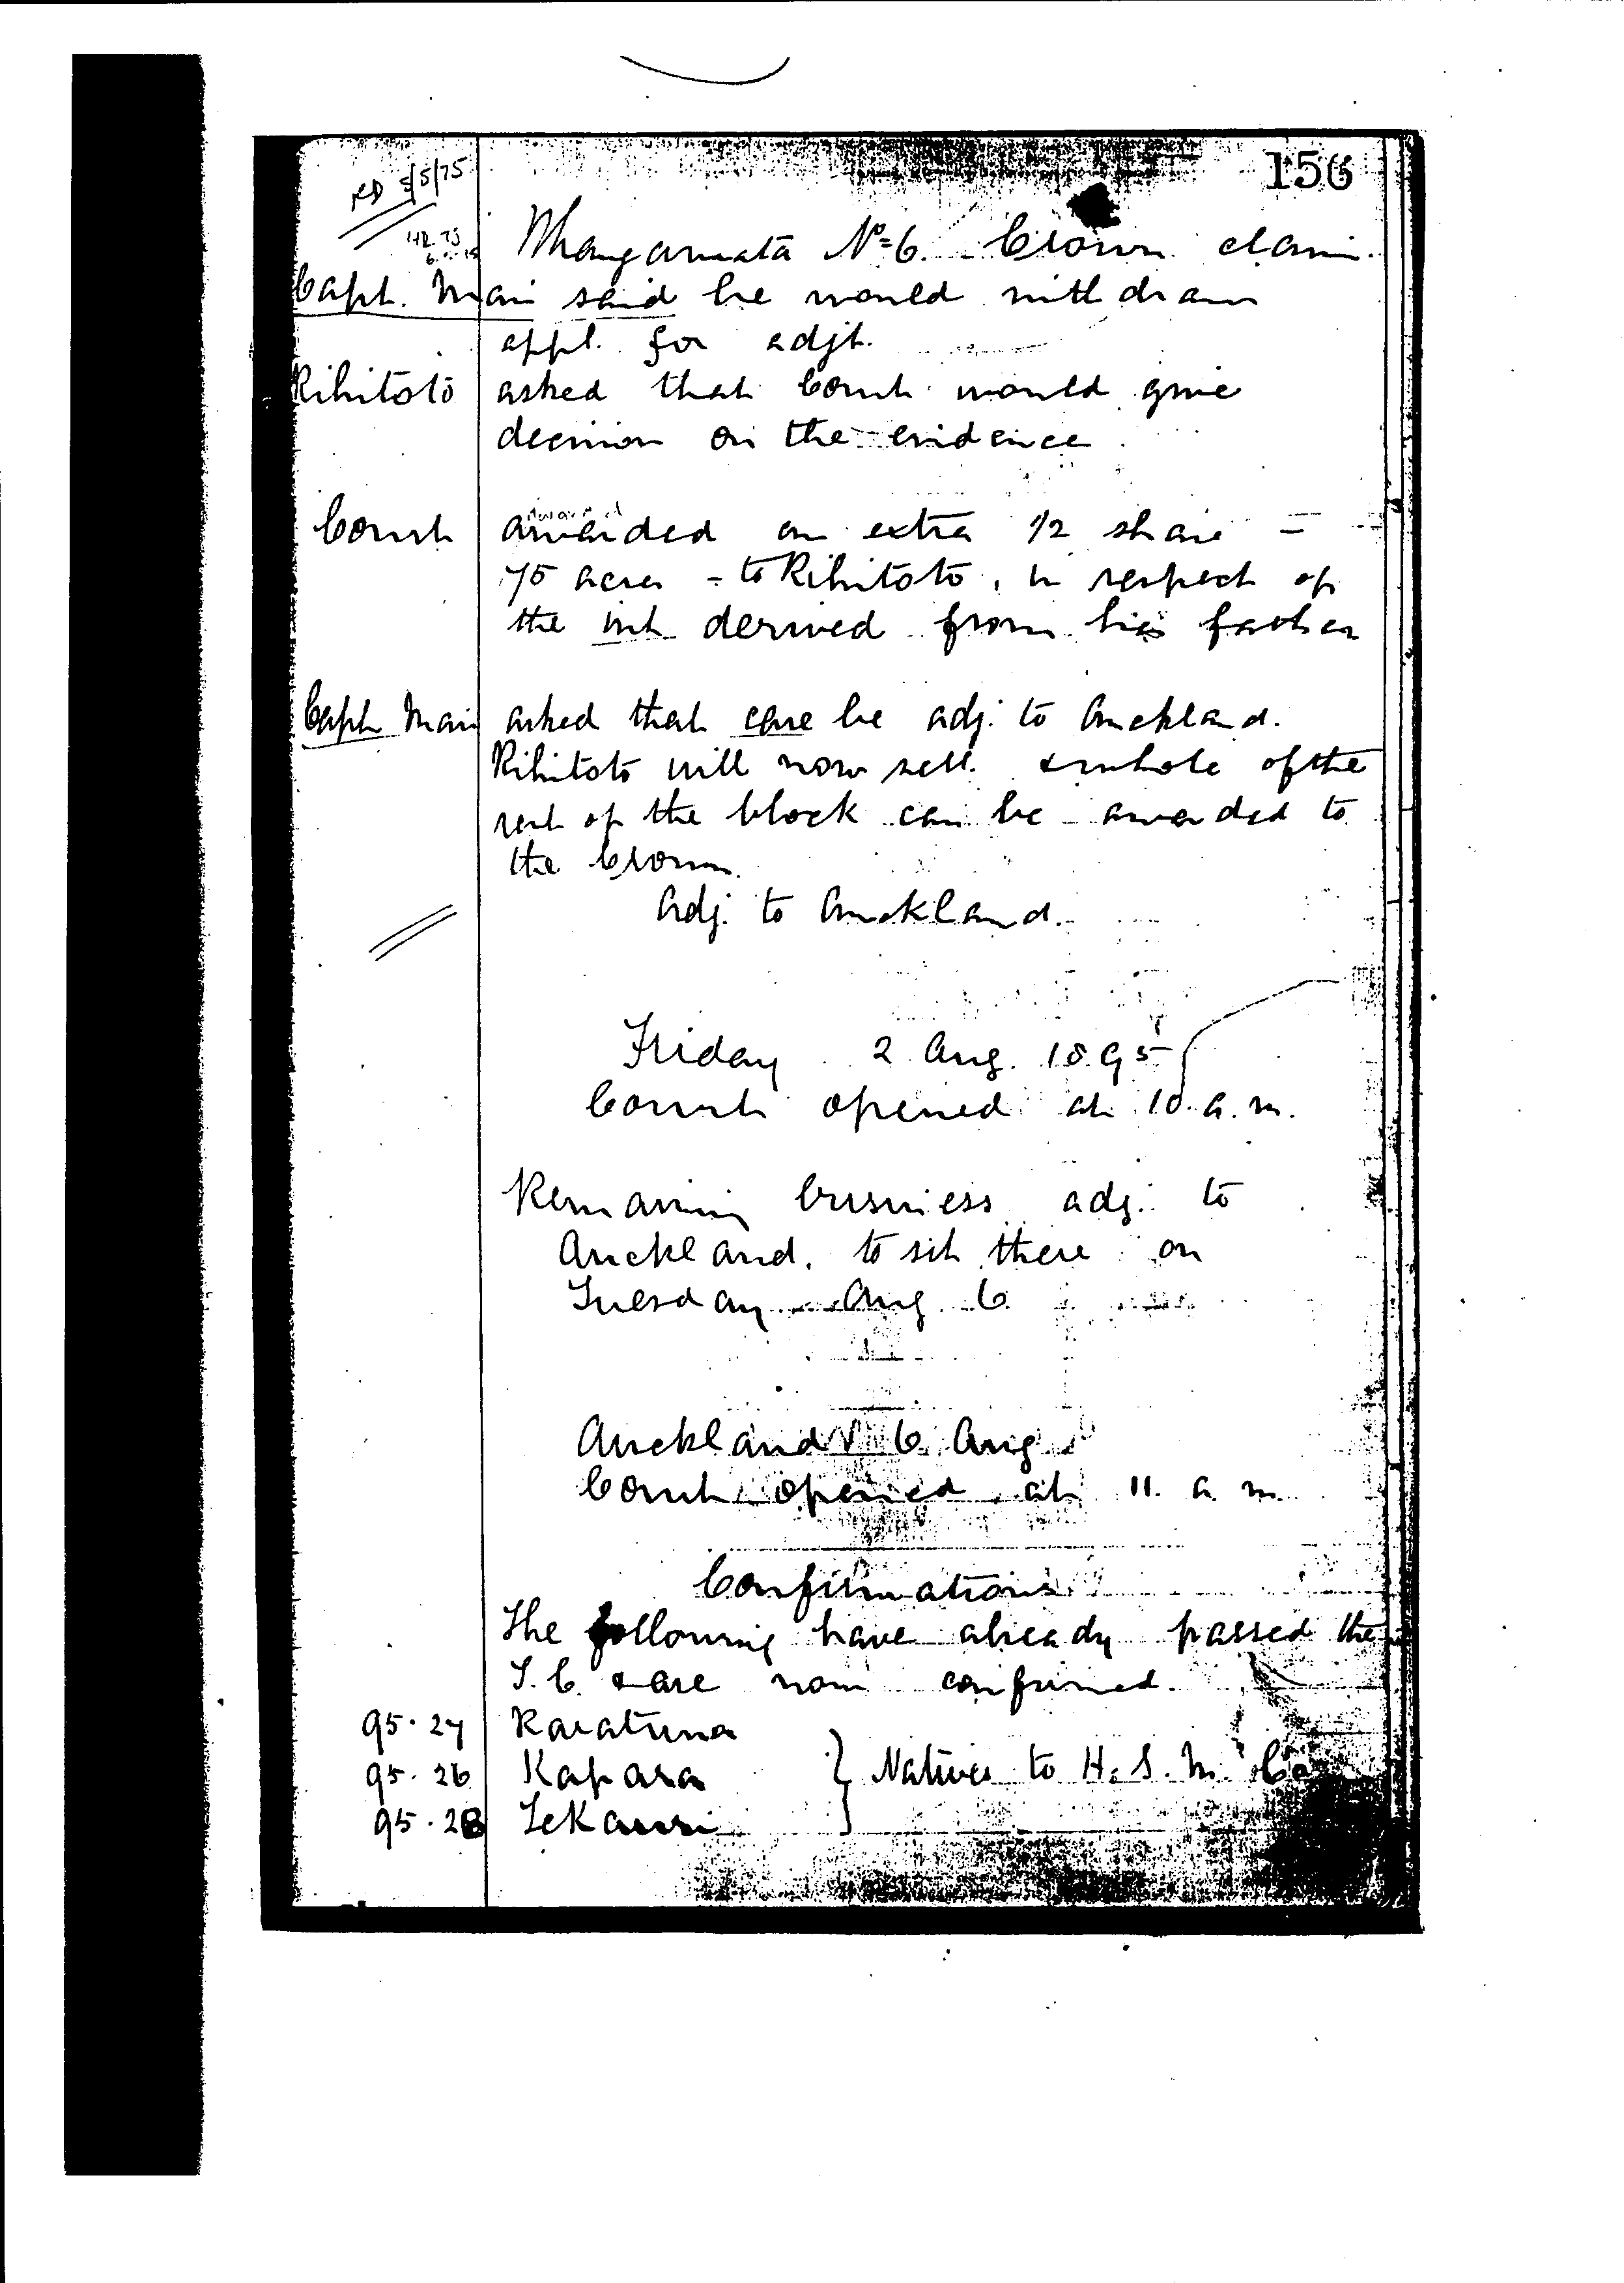 156
RD 5/5/75
Whangamata No 6. Crown claim.
Capt. Mair said he would withdraw
appl. for adjt.
Rihitoto asked that Court would give
decision on the evidence
Court awarded an extra 1/2 share =
75 acres - to Rihitoto, in respect of
the int. derived from his father
Capt Mair asked that case be adj. to Auckland.
Rihitoto will now sell. & whole of the
rest of the block can be awarded to
the Crown.
Adj. to Auckland.
Friday 2 Aug. 1895
Court opened at 10 a.m.
Remaining business adj. to
Auckland, to sit there on
Tuesday Aug 6
Auckland 6 Aug
Court opened at 11. a.m.
Confirmations
The following have already passed the
T. C. & are now confirmed.
95.27 Raratuna
95.26 Kapara
95.28 Te Kauri
} Natives to H. S. M. Co